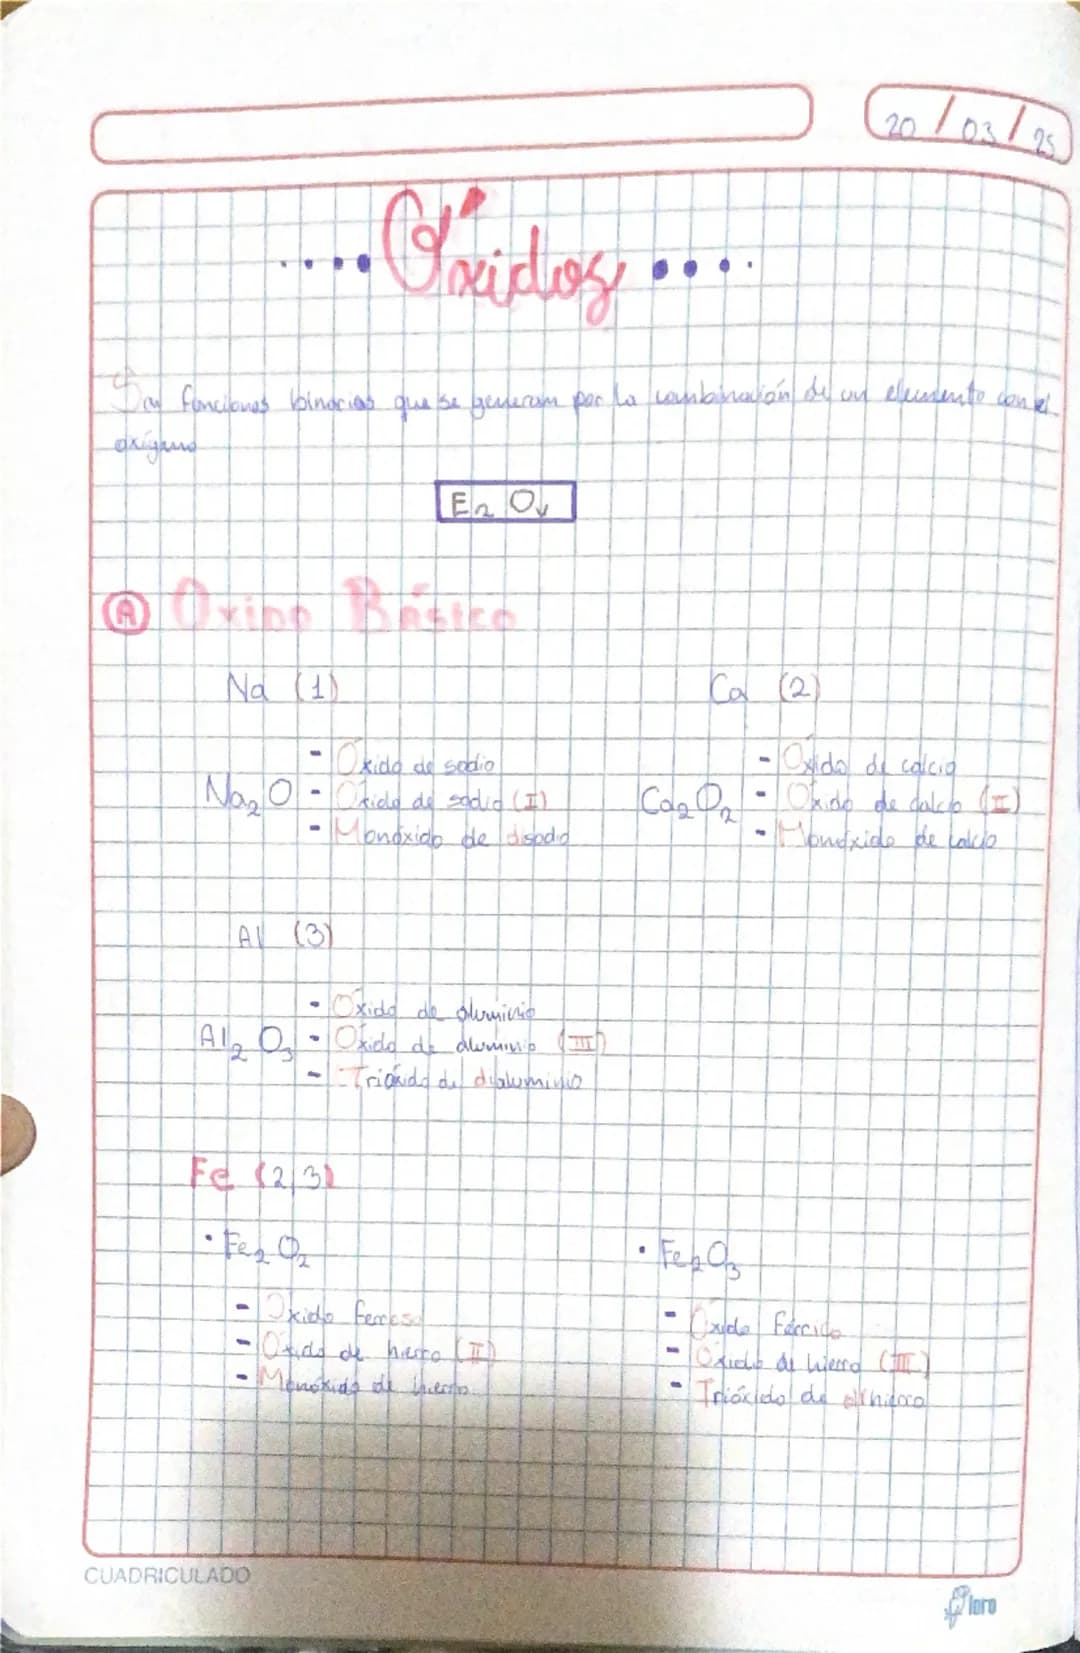 20/03/25
Óxidos
Son funciones binarias que se generam por la combinación de un elemento con el
oxígeno
E2 Ov
A Oxido Básico
Na (1)
Ca (2)
- Oxido de sodio
Na2O - Oxido de sodio (I)
- Monóxido de disodio
- Oxido de calcio
Ca2O2 - Oxido de calcio (II)
- Monóxido de calcio
Al (3)
- Oxido de aluminio
Al2 O3 - Oxido de aluminio (III)
- Trióxido de dialuminio
Fe (2,3)
• Fe2 O2
- Oxido ferroso
- Oxido de hierro (II)
- Monóxido de hierro
• Fe2O3
- Oxido Férrico
- Oxido de hierro (III)
- Trióxido de dihierro
CUADRICULADO
loro